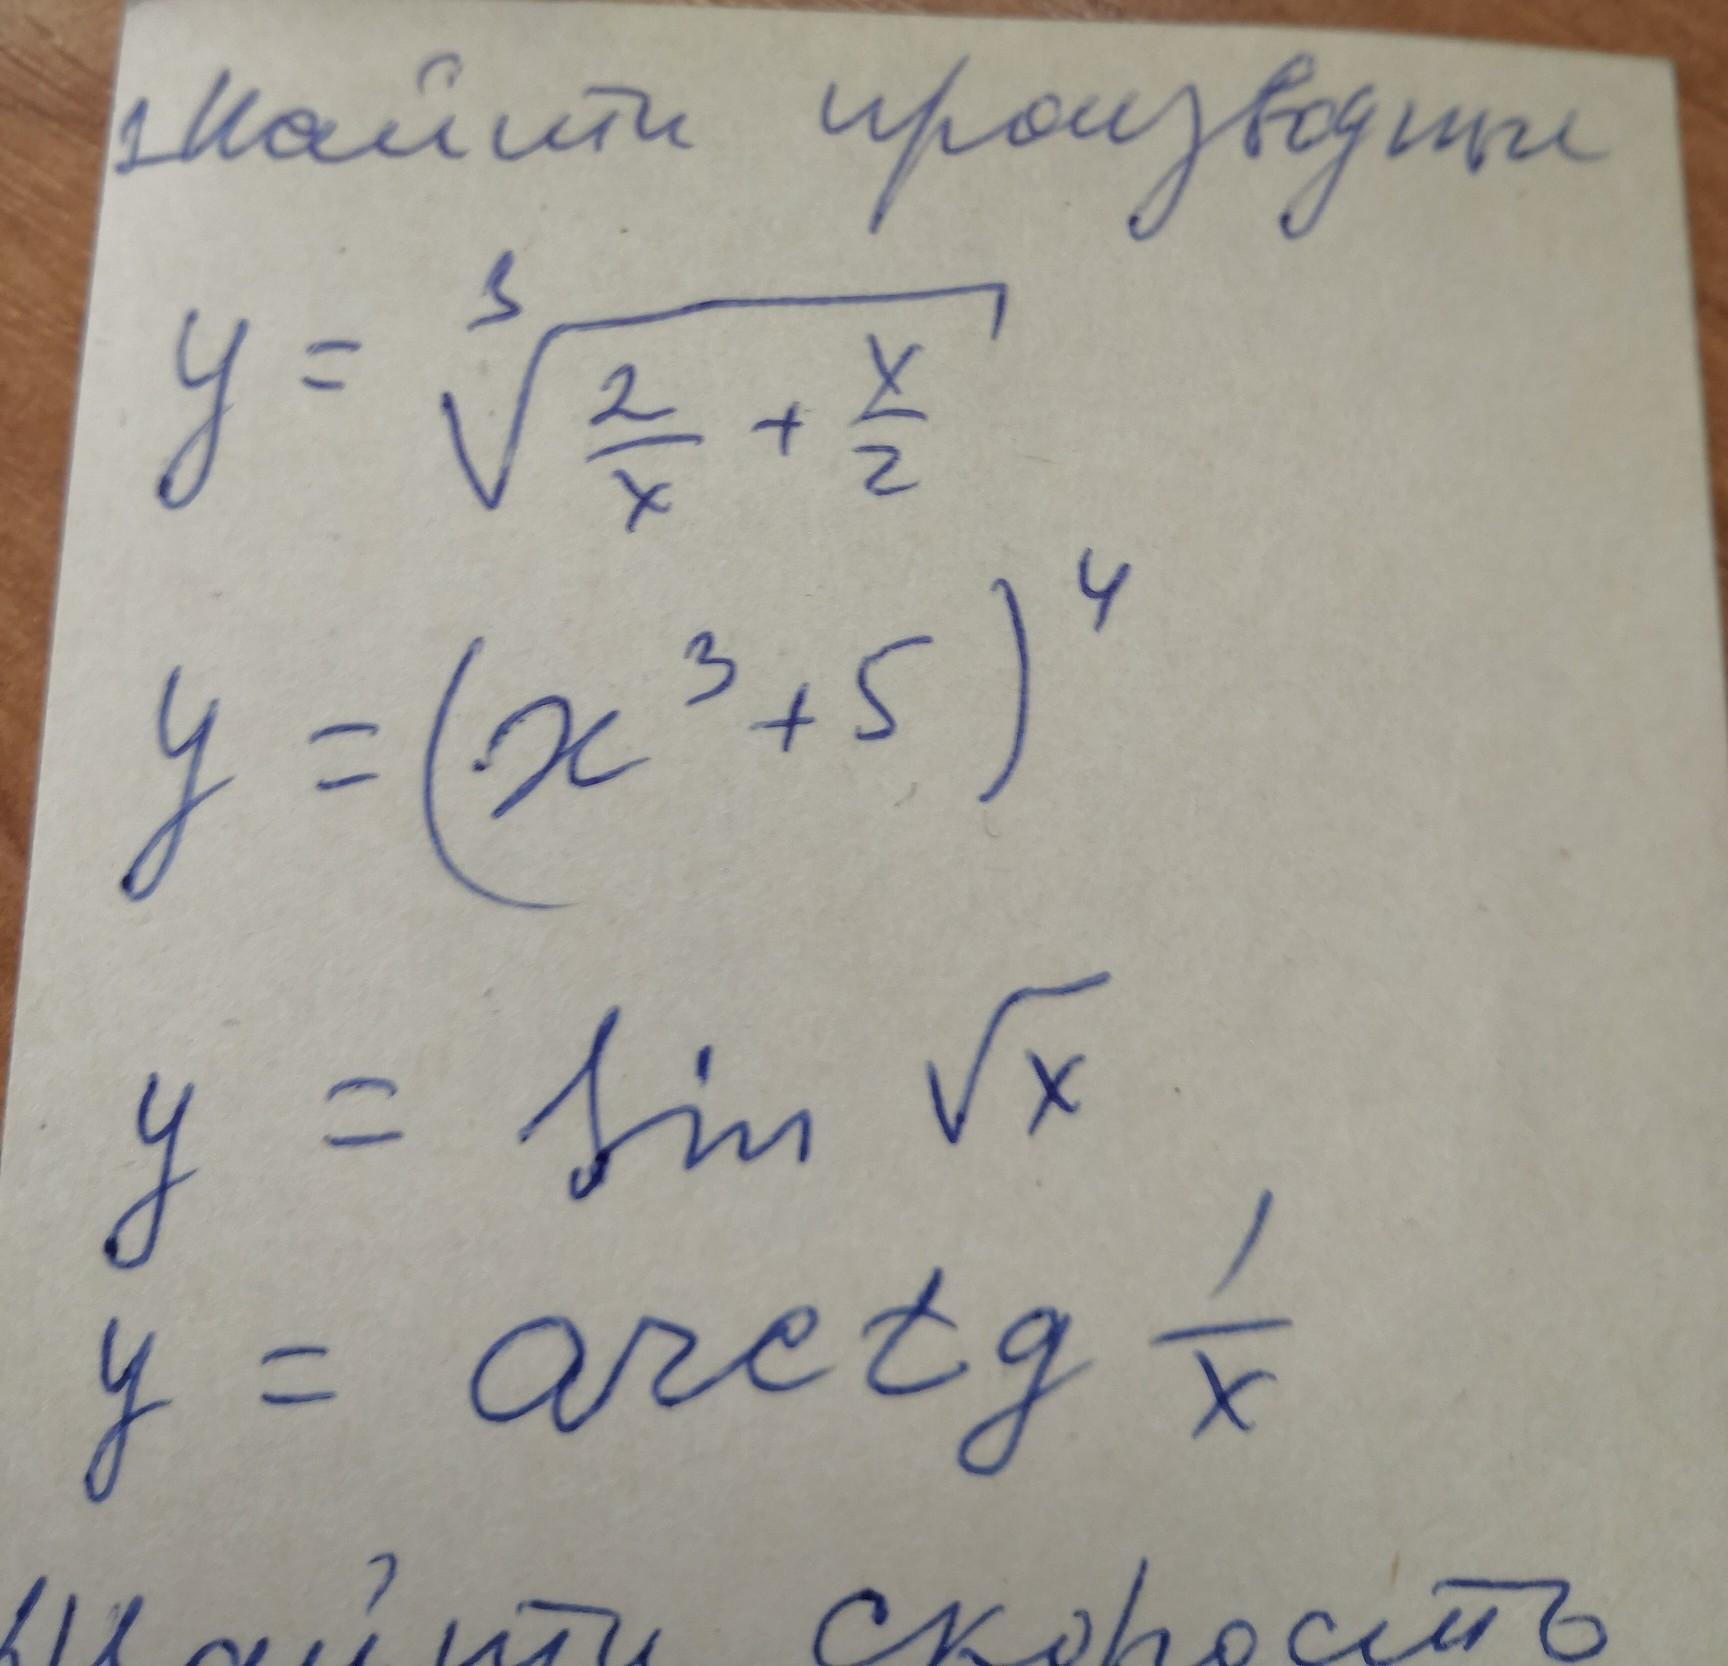 1 Найти производные
y = ∛(2/x + x/2)
y = (x³ + 5)⁴
y = sin √x
y = arctg 1/x
Найти скорость